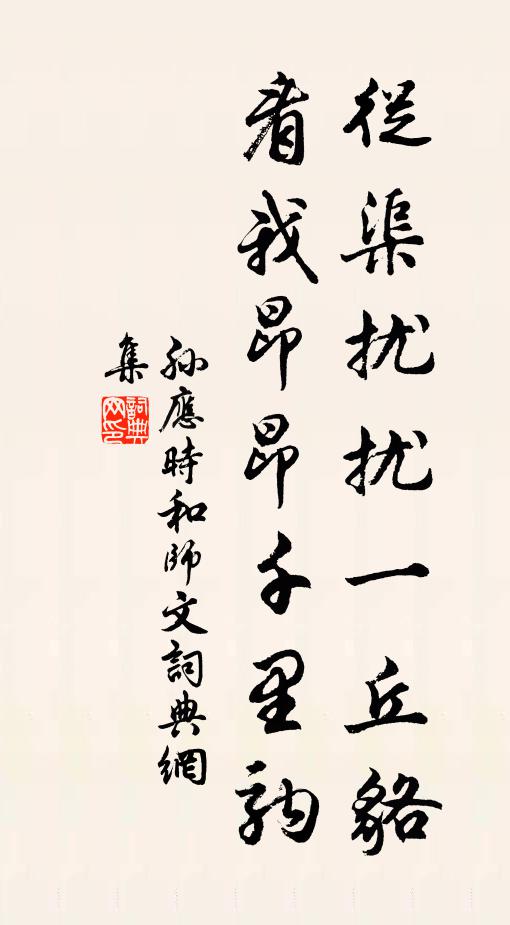 從渠扰扰一丘貉
看我昂昂千里驹
孙應時和師文詞典網
集
詞典
网印